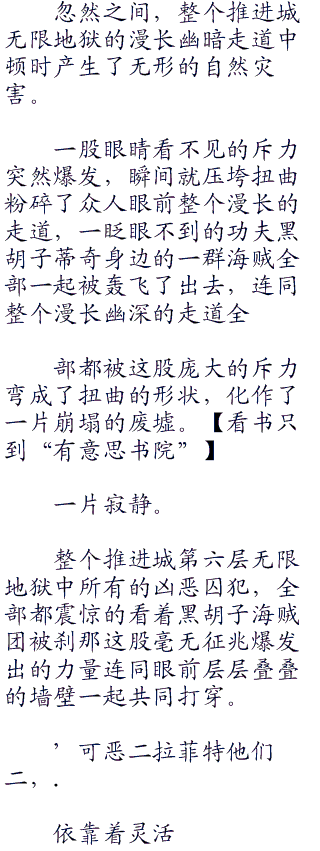 忽然之间，整个推进城
无限地狱的漫长幽暗走道中
顿时产生了无形的自然灾
害。
一股眼睛看不见的斥力
突然爆发，瞬间就压垮扭曲
粉碎了众人眼前整个漫长的
走道，一眨眼不到的功夫黑
胡子蒂奇身边的一群海贼全
部一起被轰飞了出去，连同
整个漫长幽深的走道全
部都被这股庞大的斥力
弯成了扭曲的形状，化作了
一片崩塌的废墟。【看书只
到“有意思书院”】
一片寂静。
整个推进城第六层无限
地狱中所有的凶恶囚犯，全
部都震惊的看着黑胡子海贼
团被刹那这股毫无征兆爆发
出的力量连同眼前层层叠叠
的墙壁一起共同打穿。
’可恶二拉菲特他们
二，.
依靠着灵活